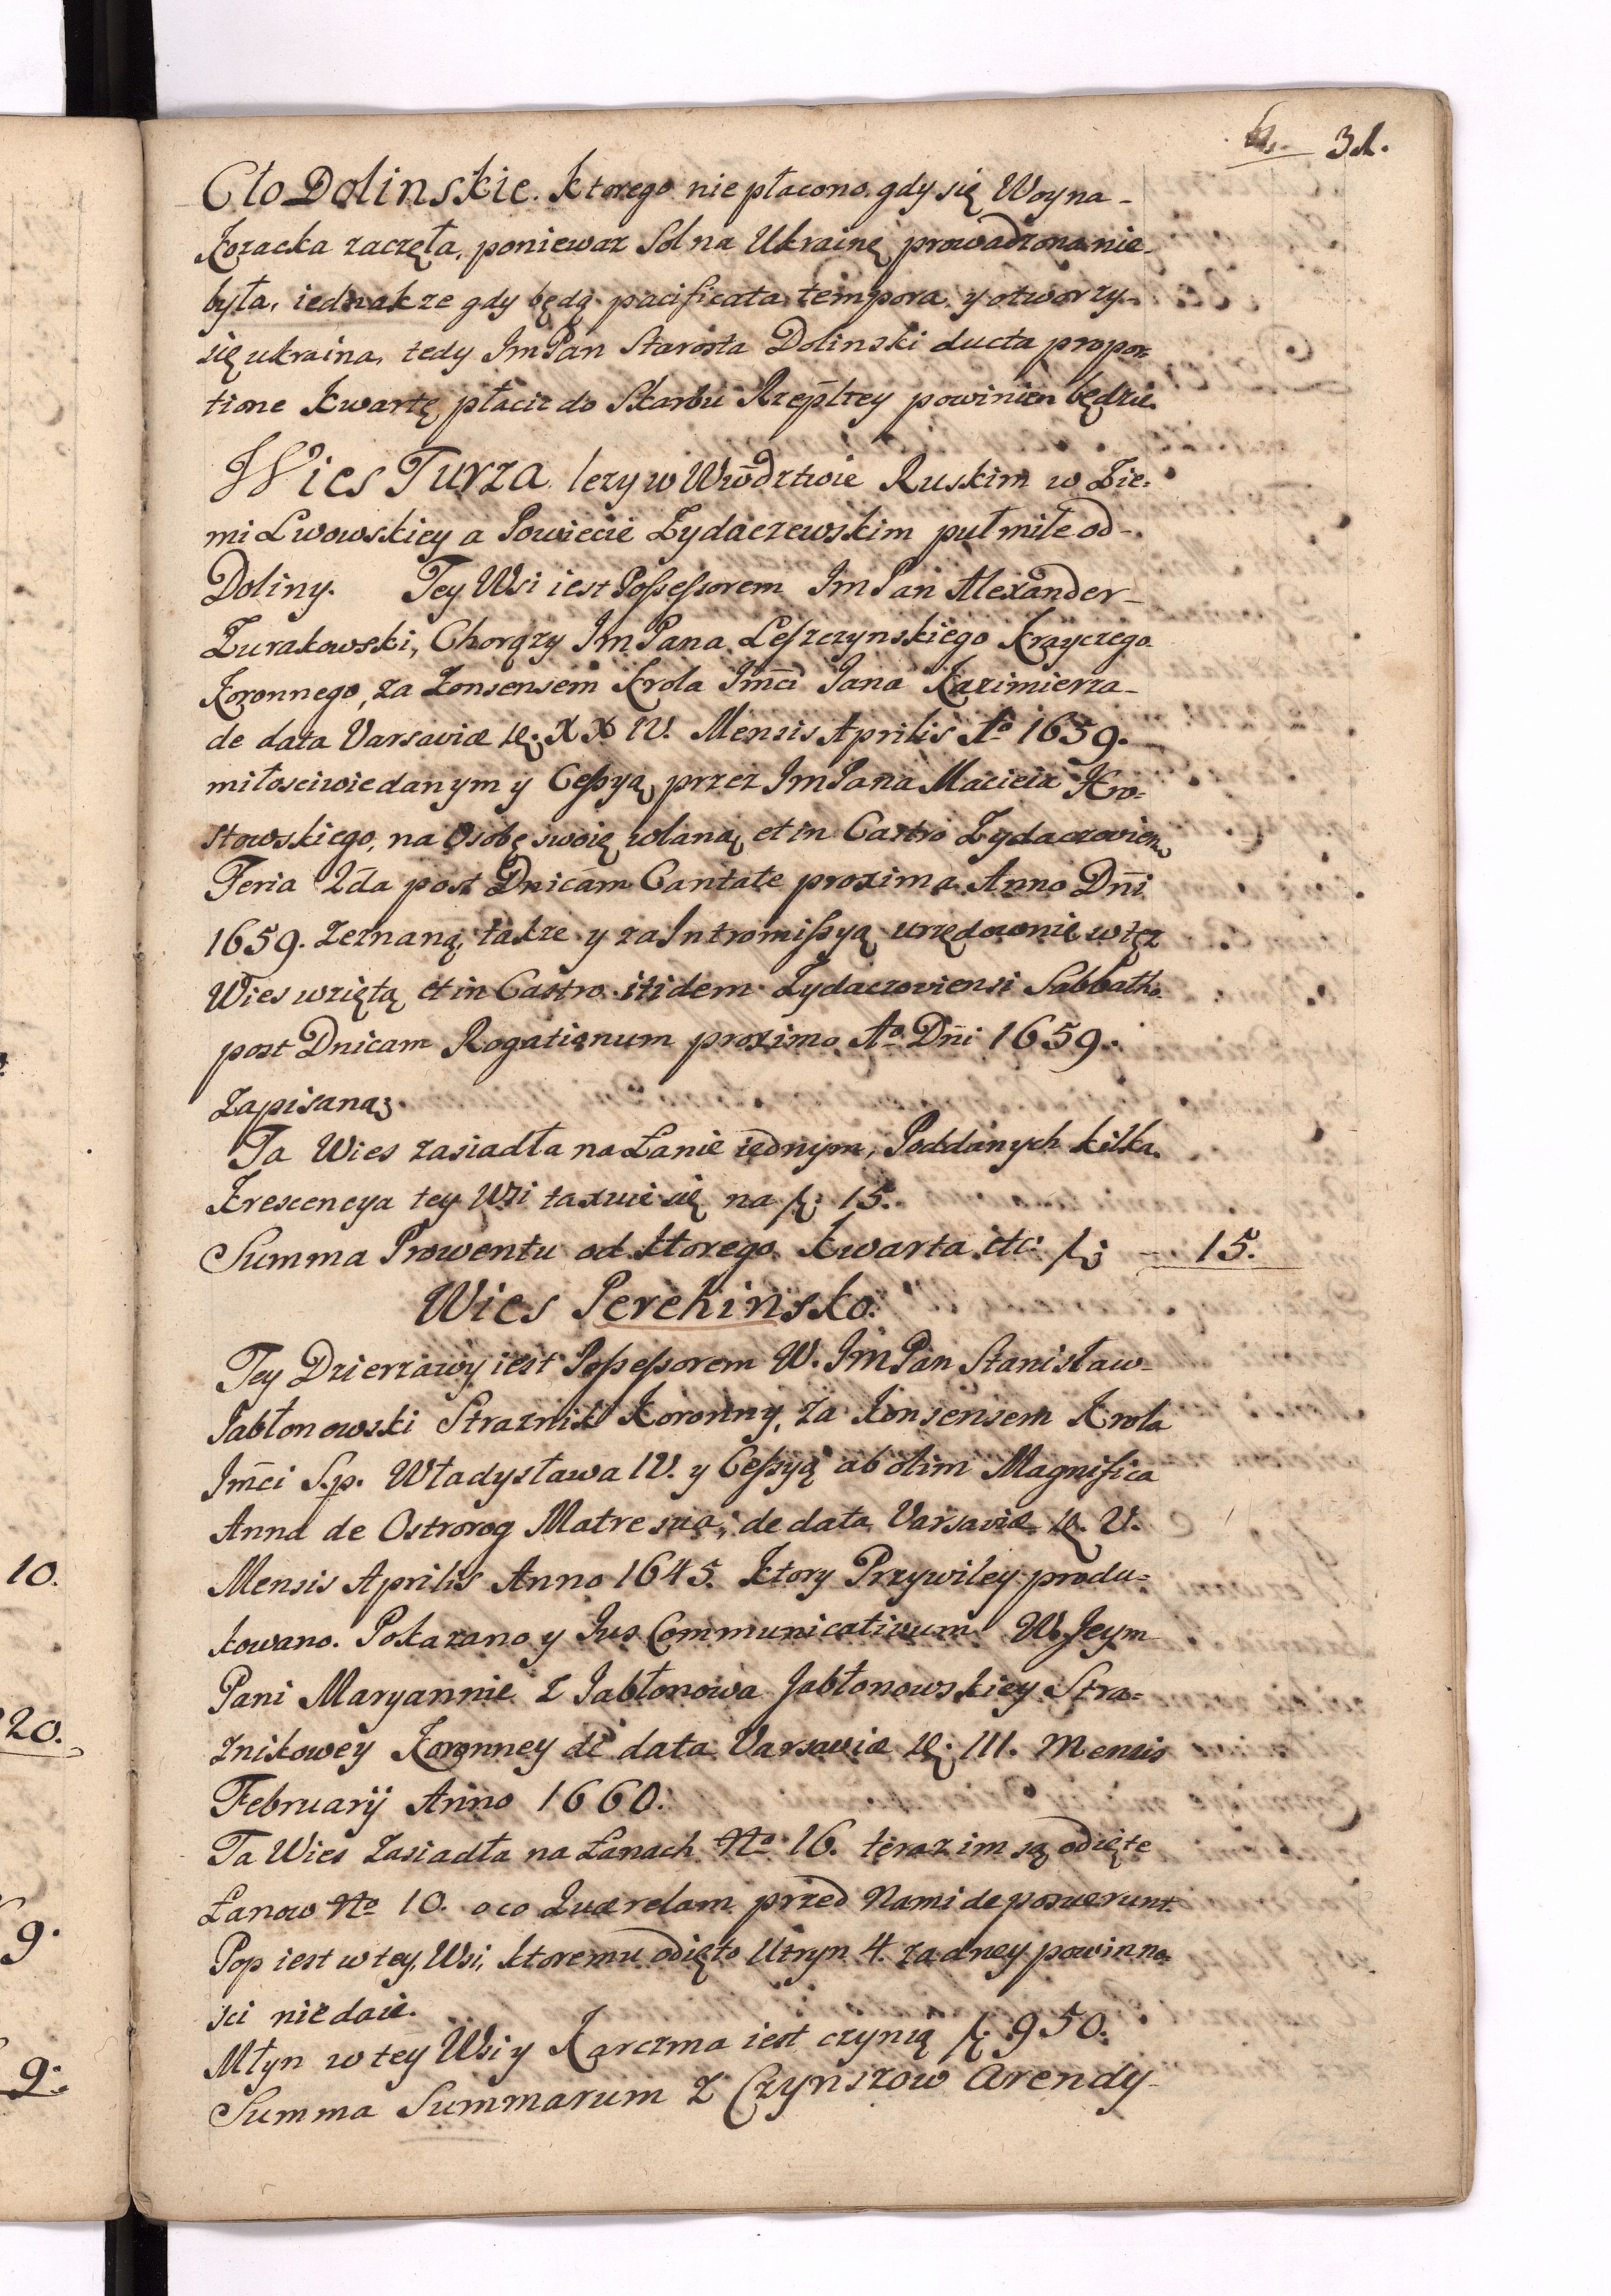 31.
Cło Dolinskie. ktorego nie płacono gdy się Woyna
Kozacka zaczęła, poniewaz Sol na Ukrainę prowadzona nie
była, iednakze gdy będą pacificata tempora y otworzy
się ukraina, tedy Jm Pan Starosta Dolinski ducta propor=
tione Kwartę płacic do Skarbu Rzepltey powinien będzie.
Wies Turza lezy w Wwodztwie Ruskim w Zie=
mi Lwowskiey a Powiecie Zydaczewskim puł mile od
Doliny. Tey Wsi iest Possessorem Jm Pan Alexander
Zurakowski, Chorązy Jm Pana Leszczynskiego Krayczego
Koronnego, za Konsensem Krola Jmci Jana Kazimierza
de data Varsaviæ XXIV. Mensis Aprilis Ao 1659.
miłosciwie danym y Cessyą przez Jm Pana Macieia
stowskiego, na Osobę swoię wlaną et in Castro Zydaczovien
Feria 2da post Dnicam Cantate proxima Anno Dni
1659. zeznaną, takze y za Intromissyą urzędownie w tęz
Wies wziętą et in Castro itidem Zydaczoviensi Sabbatho
post Dnicam Rogationum proximo Ao Dni 1659.
zapisaną.
Ta Wies zasiadła na Łanie iednym, Poddanych kilka.
Krescencya tey Wsi taxuie się na f: 15.
Summa Prowentu od ktorego Kwarta etc: f: — 15.
Wies Perehinsko.
Tey Dzierzawy iest Possessorem W. Jm Pan Stanisław
Jabłonowski Straznik Koronny, za Konsensem Krola
Jmci S.p. Władysława IV. y Cessyą ab olim Magnifica
Anna de Ostrorog Matre sua, de data Varsaviæ V.
Mensis Aprilis Anno 1645. ktory Przywiley produ=
kowano. Pokazano y Jus Communicativum W. Jeym
Pani Maryannie z Jabłonowa Jabłonowskiey Stra=
znikowey Koronney de data Varsaviæ III. Mensis
Februarij Anno 1660.
Ta Wies zasiadła na Łanach No 16. teraz im są odięte
Łanow No 10. o co Querelam przed Nami deposuerunt.
Pop iest w tey Wsi, ktoremu odięto Utryn 4. zadney powinno=
sci nie daie.
Młyn w tey Wsi y Karczma iest czynią f. 950.
Summa Summarum z Czynszow Arendy
10.
20.
9.
9.